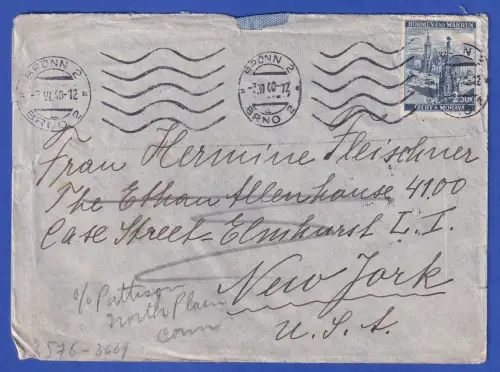 BRÜNN 2
-3.VI.40-12
BRNO 2
BRÜNN 2
-3.VI.40-12
BRNO 2
BÖHMEN UND MÄHREN
ČECHY A MORAVA
Frau Hermine Fleischner
The Ethan Allenhouse 4100
Case Street-Elmhurst L. I.
New York
U.S.A.
c/o Pattison
North Plain
Conn